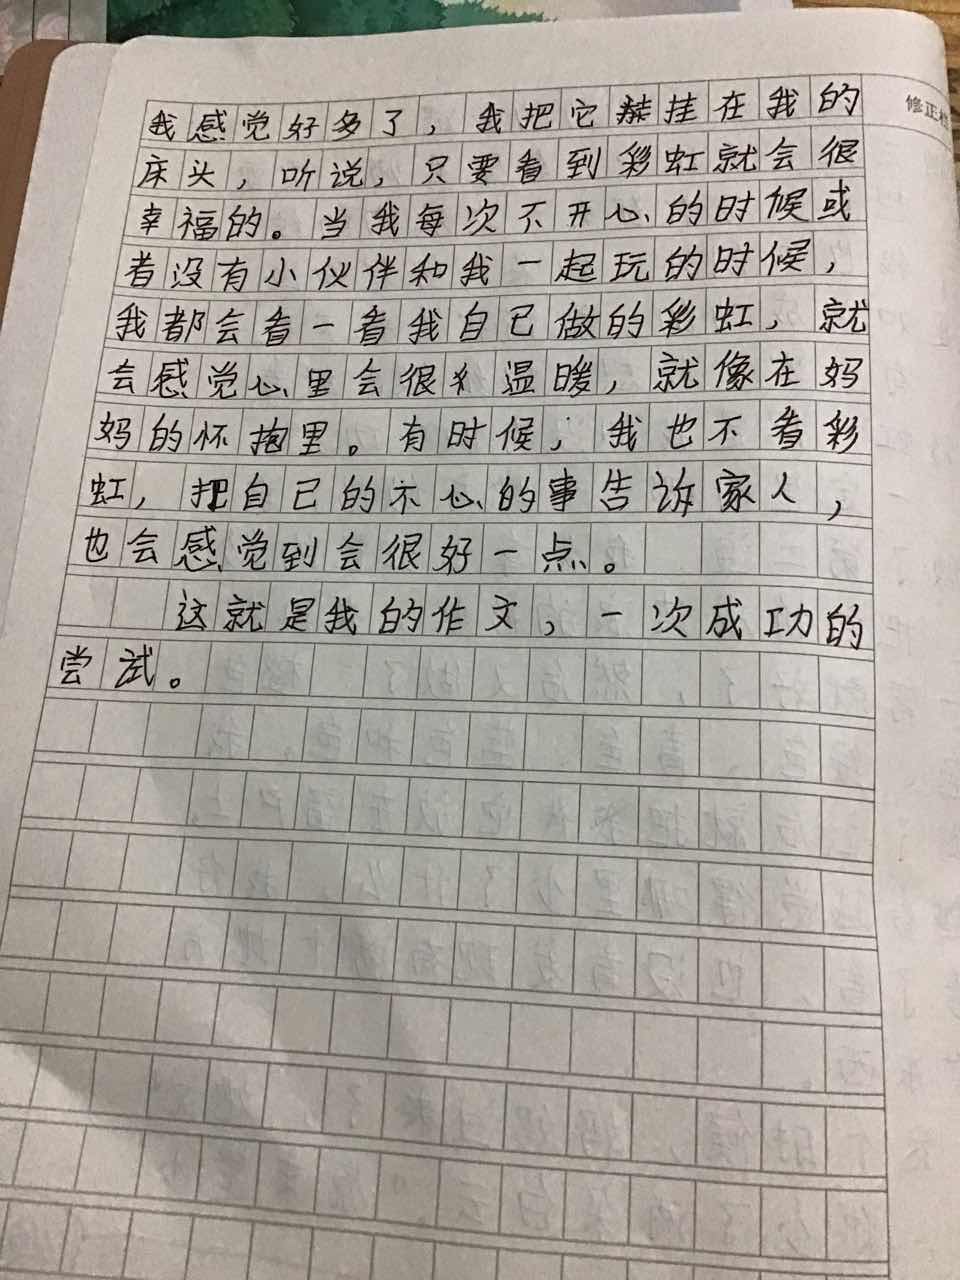 我感觉好多了，我把它挂在我的
修正栏
床头，听说，只要看到彩虹就会很
幸福的。当我每次不开心的时候或
者没有小伙伴和我一起玩的时候，
我都会看一看我自己做的彩虹，就
会感觉心里会很温暖，就像在妈
妈的怀抱里。有时候，我也不看彩
虹，把自己的不心的事告诉家人，
也会感觉到会很好一点。
这就是我的作文，一次成功的
尝试。